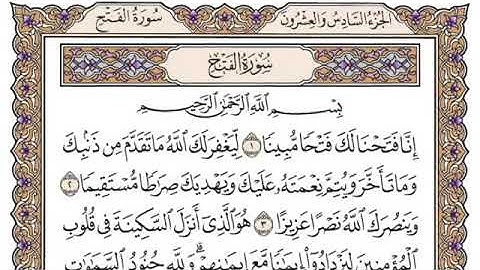 سُورَةُ الفَتْحِ الجُزْءُ السَّادِسُ وَالعِشْرُونَ
سُورَةُ الفَتْحِ
بِسْمِ اللَّهِ الرَّحْمَٰنِ الرَّحِيمِ
إِنَّا فَتَحْنَا لَكَ فَتْحًا مُّبِينًا ١ لِّيَغْفِرَ لَكَ اللَّهُ مَا تَقَدَّمَ مِن ذَنۢبِكَ
وَمَا تَأَخَّرَ وَيُتِمَّ نِعْمَتَهُۥ عَلَيْكَ وَيَهْدِيَكَ صِرَٰطًا مُّسْتَقِيمًا ٢
وَيَنصُرَكَ اللَّهُ نَصْرًا عَزِيزًا ٣ هُوَ الَّذِىٓ أَنزَلَ السَّكِينَةَ فِى قُلُوبِ
الْمُؤْمِنِينَ لِيَزْدَادُوٓا۟ إِيمَٰنًا مَّعَ إِيمَٰنِهِمْ ۗ وَلِلَّهِ جُنُودُ السَّمَٰوَٰتِ